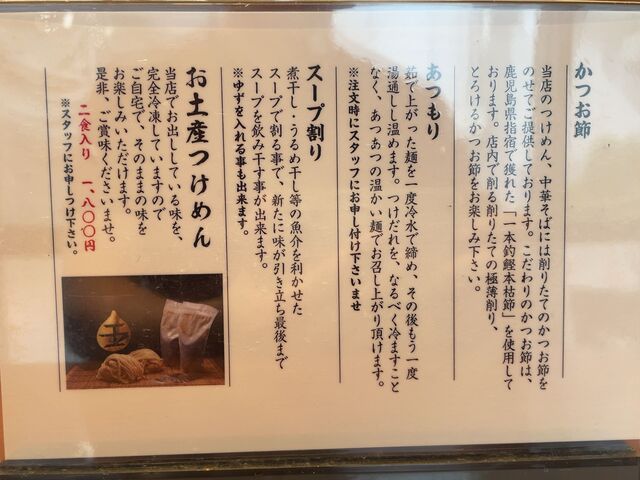 かつお節
当店のつけめん、中華そばには削りたてのかつお節を
のせてご提供しております。こだわりのかつお節は、
鹿児島県指宿で獲れた「一本釣鰹本枯節」を使用して
おります。店内で削る削りたての極薄削り、
とろけるかつお節をお楽しみ下さい。
あつもり
茹で上がった麺を一度冷水で締め、その後もう一度
湯通しし温めます。つけだれを、なるべく冷ますこと
なく、あつあつの温かい麺でお召し上がり頂けます。
※注文時にスタッフにお申し付け下さいませ
スープ割り
煮干し・うるめ干し等の魚介を利かせた
スープで割る事で、新たに味が引き立ち最後まで
スープを飲み干す事が出来ます。
※ゆずを入れる事も出来ます。
お土産つけめん
当店でお出ししている味を、
完全冷凍していますので
ご自宅で、そのままの味を
お楽しみいただけます。
是非、ご賞味くださいませ。
二食入り 一、八〇〇円
※スタッフにお申しつけ下さい。